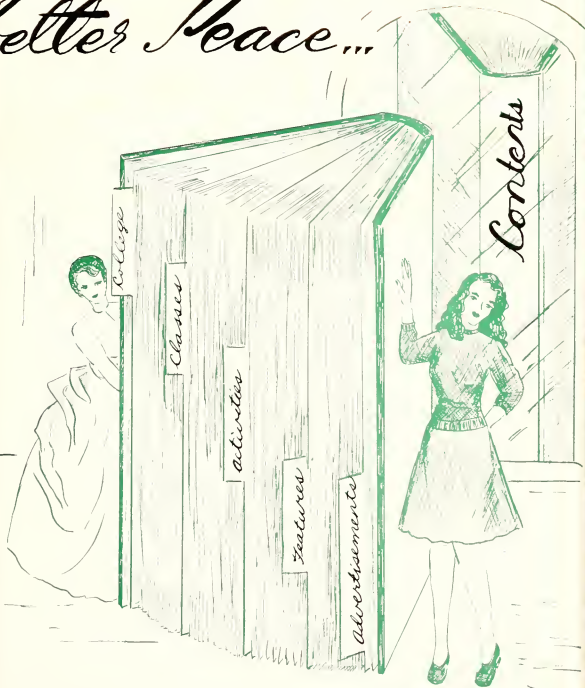 etter Peace...
Contents
College
Classes
activities
Features
advertisements